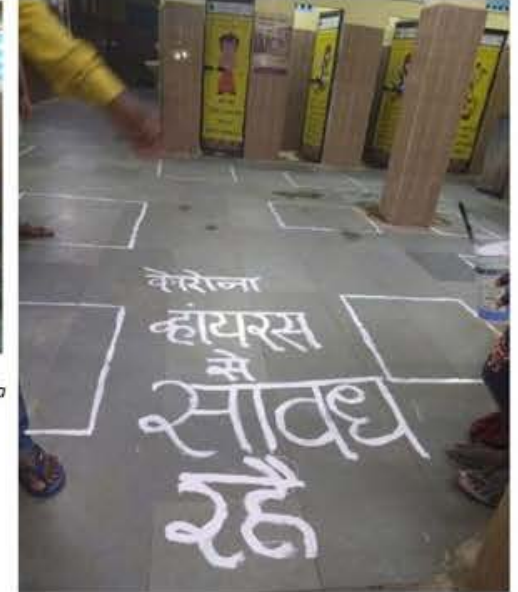 कोरोना
व्हांयरस
से
सावध
रहै